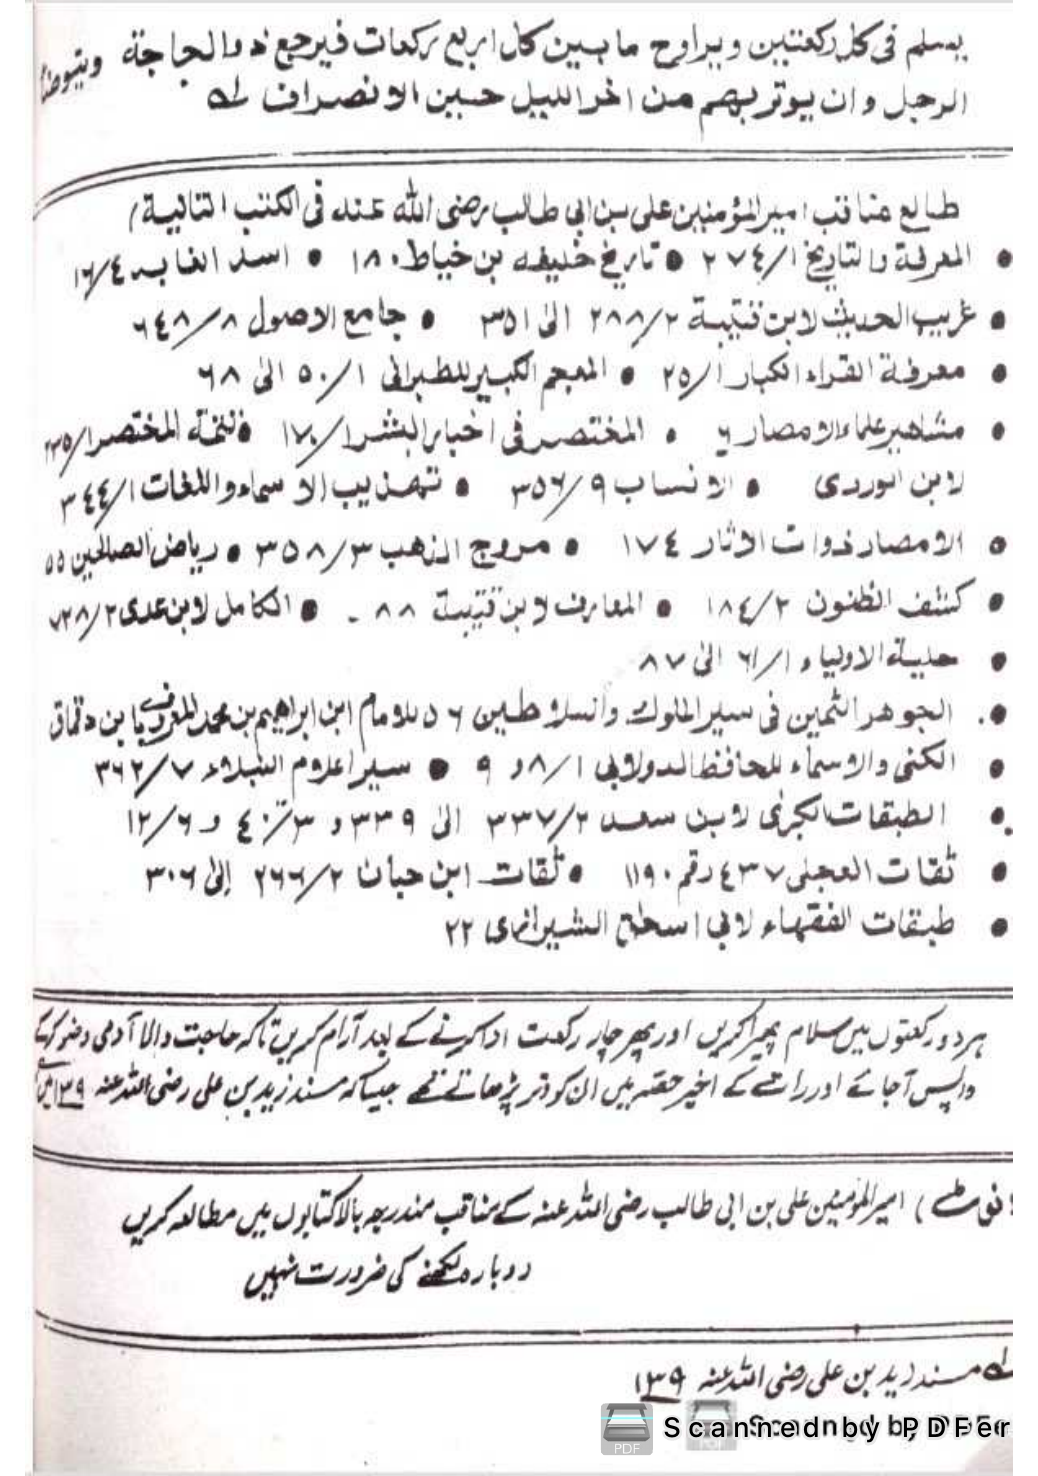 يسلم فى كل ركعتين ويراوح مابين كل اربع ركعات فيرجع ذو الحاجة ويتوضأ
الرجل وان يوتر بهم من اخر الليل حين الانصراف له
طالع مناقب امير المؤمنين على بن ابى طالب رضى الله عنه فى الكتب التالية/
• المعرفة والتاريخ ١/٢٧٤ • تاريخ خليفه بن خياط ١٨٠ • اسد الغابه ٤/١٦
• غريب الحديث لابن قتيبة ٢/٢٨٨ الى ٣٥١ • جامع الاصول ٨/٦٤٨
• معرفة القراء الكبار ١/٢٥ • المعجم الكبير للطبرانى ١/٥٠ الى ٦٨
• مشاهير علماء الامصار ٦ • المختصر فى اخبار البشر ١/١٧٠ • تتمة المختصر ١/٢٣٥
لابن الوردى • الانساب ٩/٣٥٦ • تهذيب الاسماء واللغات ١/٣٤٤
• الامصار ذوات الاثار ١٧٤ • مروج الذهب ٣/٣٥٨ • رياض الصالحين ٥٥
• كشف الظنون ٢/١٨٤ • المعارف لابن قتيبة ٨٨ - • الكامل لابن عدى ٢/
• حلية الاولياء ١/٦١ الى ٨٧
• الجوهر الثمين فى سير الملوك والسلاطين ٥٦ للامام ابن ابراهيم بن محمد المعروف بابن دقماق
• الكنى والاسماء للحافظ الدولابي ١/٨ و ٩ • سير اعلام النبلاء ٧/٣٦٢
• الطبقات الكبرى لابن سعد ٢/٣٣٧ الى ٣٣٩ و ٣/٤٠ و ٦/١٢
• ثقات العجلى ٤٣٧ رقم ١١٩٠ • ثقات ابن حبان ٢/٢٦٦ إلى ٣٠٦
• طبقات الفقهاء لابي اسحق الشيرازى ٢٢
ہر دو رکعتوں میں سلام پھیرا کریں اور پھر چار رکعت ادا کرنے کے بعد آرام کریں تاکہ حاجت والا آدمی وضو کرکے
واپس آجائے اور رات کے اخیر حصہ میں ان کو وتر پڑھاتے تھے جیسا کہ مسند زید بن علی رضی اللہ عنہ ١٣٩ میں ہے
(نوٹ) امیر المؤمنین علی بن ابی طالب رضی اللہ عنہ کے مناقب مندرجہ بالا کتابوں میں مطالعہ کریں
دوبارہ لکھنے کی ضرورت نہیں
له مسند زید بن علی رضی اللہ عنہ ١٣٩
Scanned by PDFer